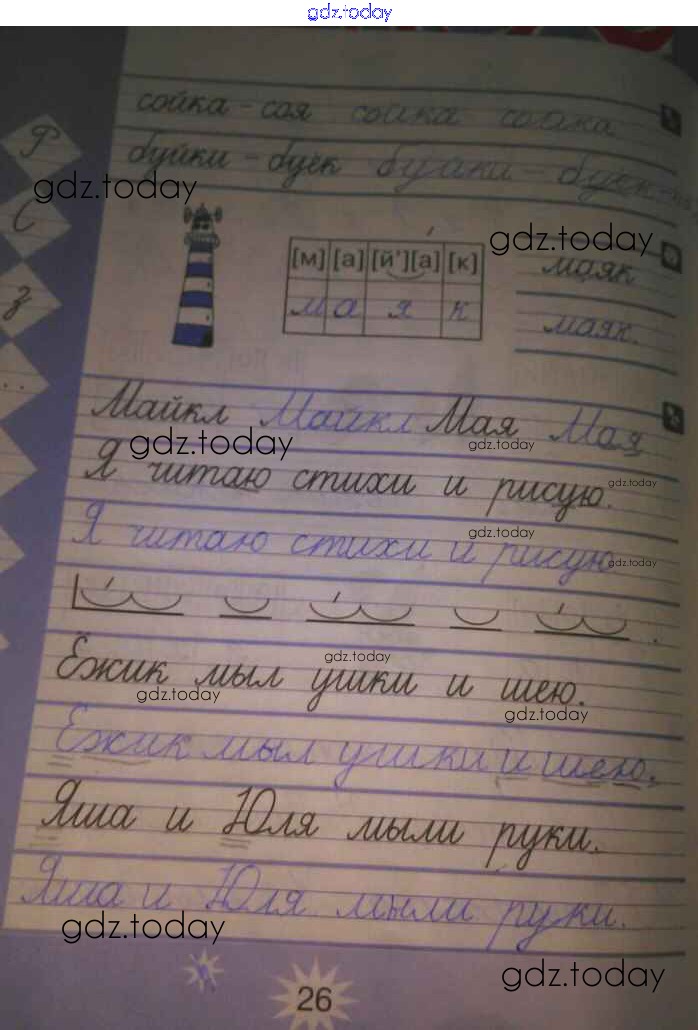 gdz.today
сойка - соя сойка сойка
буйки - буёк буйки - буёк
Р
gdz.today
С
gdz.today
[м] [а] [й'][а] [к]
маяк
з
м а я к
маяк.
Майкл Майкл Мая Мая
gdz.today
gdz.today
Я читаю стихи и рисую.
gdz.today
Я читаю стихи и рисую
gdz.today
gdz.today
gdz.today
Ёжик мыл ушки и шею.
gdz.today
gdz.today
Ёжик мыл ушки и шею.
Яша и Юля мыли руки.
Яша и Юля мыли руки.
gdz.today
gdz.today
26